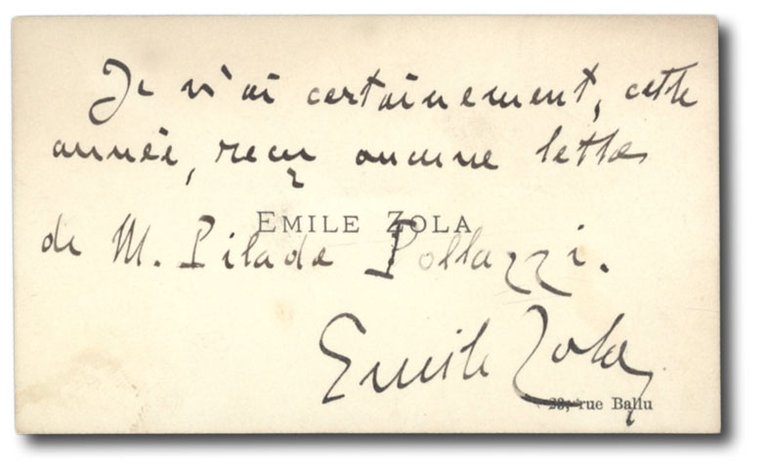 Je n'ai certainement, cette
année, reçu aucune lettre
EMILE ZOLA
de M. Pilade Pollazzi.
Emile Zola
rue Ballu